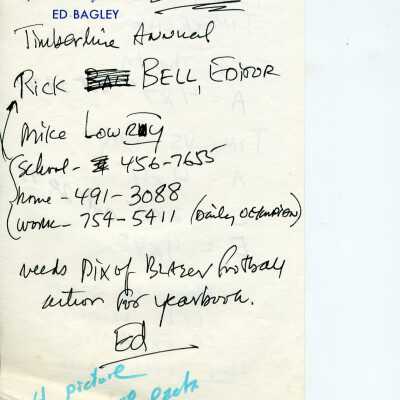 ED BAGLEY
Timberline Annual
Rick BELL, EDITOR
Mike Lowry
school - 456-7655
home - 491-3088
work - 754-5411 (Daily OLYMPIAN)
needs Pix of BLAZER football
action for yearbook.
Ed
picture